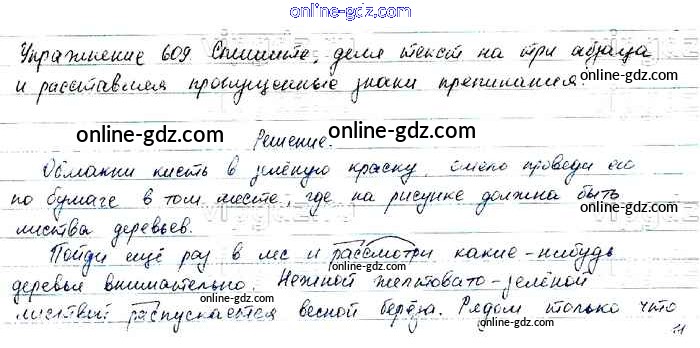 online-gdz.com
Упражнение 609 Спишите, деля текст на три абзаца
online-gdz.com
и расставляя пропущенные знаки препинания.
online-gdz.com
online-gdz.com
Решение.
Обмакни кисть в зелёную краску, смело проведи ею
по бумаге в том месте, где на рисунке должна быть
online-gdz.com
листва деревьев.
Пойди ещё раз в лес и рассмотри какие-нибудь
online-gdz.com
деревья внимательно. Нежной желтовато-зелёной
online-gdz.com
online-gdz.com
листвой распускается весной берёза. Рядом только что
online-gdz.com